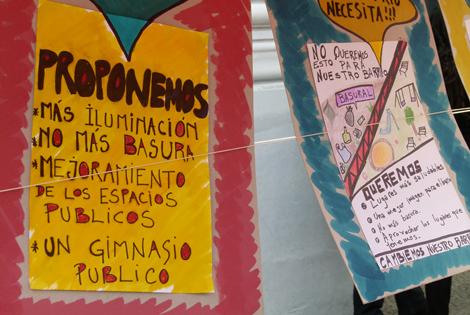 PROPONEMOS
*MÁS ILUMINACIÓN
*NO MÁS BASURA
*MEJORAMIENTO
DE LOS ESPACIOS
PUBLICOS
*UN GIMNASIO
PUBLICO
NECESITA!!!
NO QUEREMOS
ESTO PARA
NUESTRO BARRIO
BASURAL
QUEREMOS
• Lugares más saludables
• Una mejor imagen para el barrio
• No más basura.
• Aprovechar los lugares que
tenemos.
CAMBIEMOS NUESTRO BARRIO